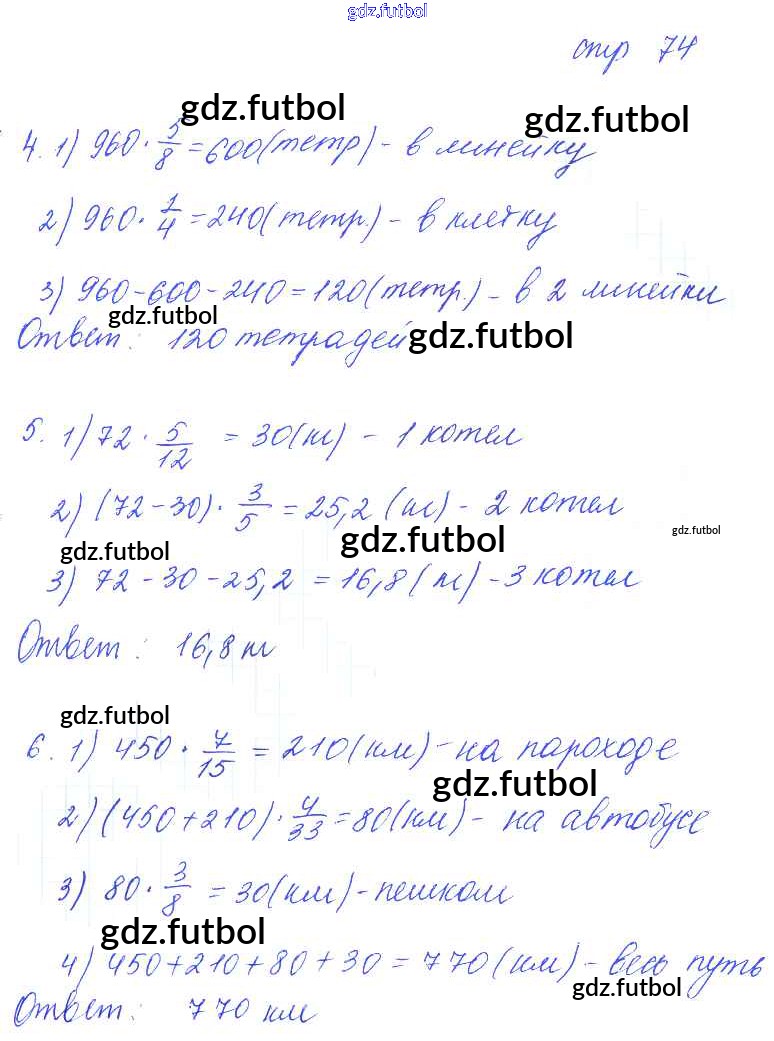 gdz.futbol
стр 74
gdz.futbol gdz.futbol
4. 1) 960 · 5/8 = 600 (тетр) - в линейку
2) 960 · 1/4 = 240 (тетр.) - в клетку
3) 960 - 600 - 240 = 120 (тетр.) - в 2 линейки
gdz.futbol
Ответ: 120 тетрадей
gdz.futbol
5. 1) 72 · 5/12 = 30 (т) - 1 котел
2) (72 - 30) · 3/5 = 25,2 (т) - 2 котел
gdz.futbol
gdz.futbol gdz.futbol
3) 72 - 30 - 25,2 = 16,8 (т) - 3 котел
Ответ: 16,8 т
gdz.futbol
6. 1) 450 · 7/15 = 210 (км) - на пароходе
gdz.futbol
2) (450 + 210) · 4/33 = 80 (км) - на автобусе
3) 80 · 3/8 = 30 (км) - пешком
gdz.futbol
4) 450 + 210 + 80 + 30 = 770 (км) - весь путь
gdz.futbol
Ответ: 770 км